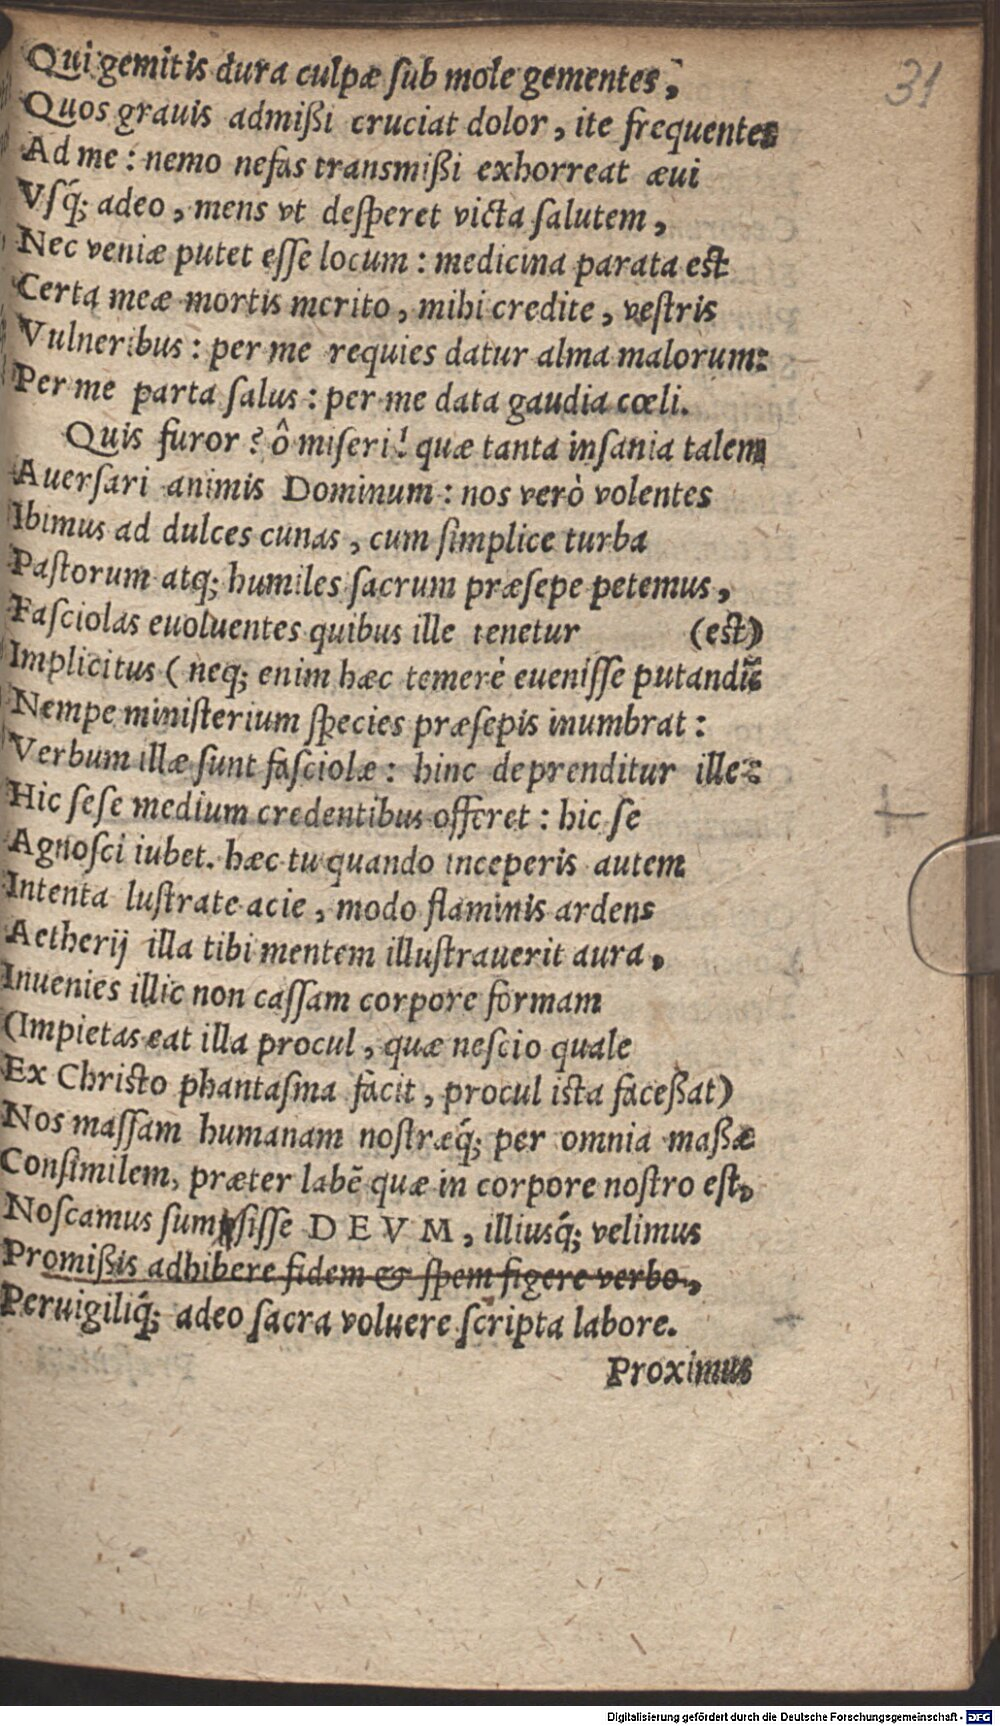 31
Qui gemitis dura culpæ ſub mole gementes,
Quos grauis admißi cruciat dolor, ite frequentes
Ad me: nemo nefas transmißi exhorreat æui
Vſq́; adeo, mens vt deſperet victa ſalutem,
Nec veniæ putet eſſe locum: medicina parata est
Certa meæ mortis merito, mihi credite, veſtris
Vulneribus: per me requies datur alma malorum:
Per me parta ſalus: per me data gaudia cœli.
Quis furor? ô miſeri! quæ tanta inſania talem
Auerſari animis Dominum: nos verò volentes
Ibimus ad dulces cunas, cum ſimplice turba
Paſtorum atq; humiles ſacrum præſepe petemus,
Faſciolas euoluentes quibus ille tenetur (est)
Implicitus (neq; enim hæc temerè eueniſſe putandũ
Nempe miniſterium ſpecies præſepis inumbrat:
Verbum illæ ſunt faſciolæ: hinc deprenditur ille:
Hic ſeſe medium credentibus offeret: hic ſe
Agnoſci iubet. hæc tu quando inceperis autem
Intenta luſtrate acie, modo flaminis ardens
Aetherij illa tibi mentem illuſtrauerit aura,
Inuenies illic non caſſam corpore formam
(Impietas eat illa procul, quæ neſcio quale
Ex Chriſto phantaſma facit, procul iſta faceßat)
Nos maſſam humanam noſtræq́; per omnia maßæ
Conſimilem, præter labẽ quæ in corpore noſtro eſt,
Noſcamus sumſiſſe DEVM, illiusq́; velimus
Promißis adhibere fidem & ſpem figere verbo,
Peruigiliq́; adeo ſacra voluere ſcripta labore.
Proximus
Digitalisierung gefördert durch die Deutsche Forschungsgemeinschaft - DFG